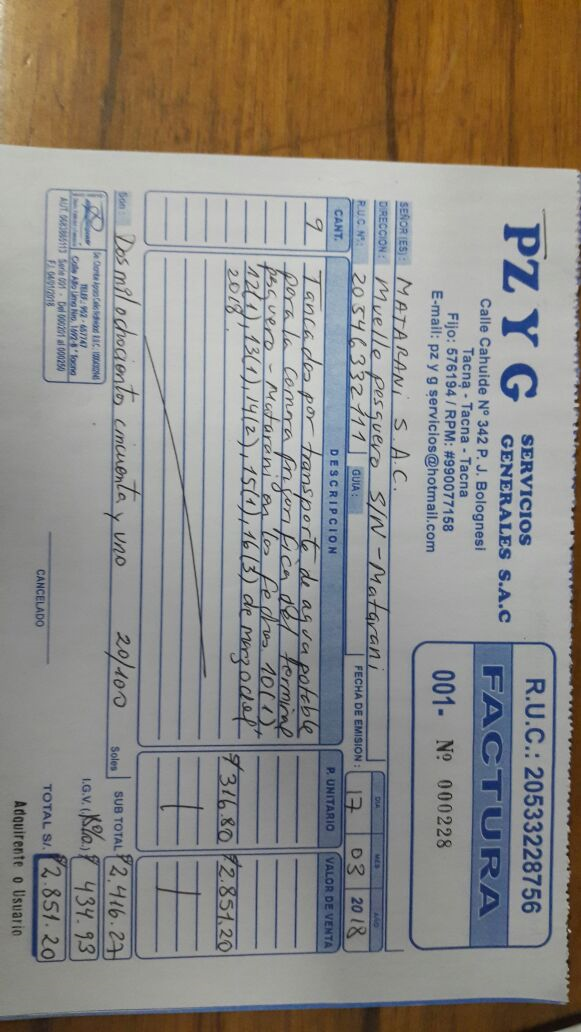 PZ Y G SERVICIOS
GENERALES S.A.C
Calle Cahuide Nº 342 P. J. Bolognesi
Tacna - Tacna - Tacna
Fijo: 576194 / RPM: #990077158
E-mail: pz y g servicios@hotmail.com
R.U.C.: 20533228756
FACTURA
001- Nº 000228
SEÑOR (ES): MATARANI S.A.C.
DIRECCION: Muelle pesquero S/N - Matarani
R.U.C. Nº: 20546332711 GUIA: FECHA DE EMISION: DIA 17 MES 03 AÑO 2018
CANT. DESCRIPCION P. UNITARIO VALOR DE VENTA
9 Tancados por transporte de agua potable
para la camra frigorifica del terminal
pesquero - Matarani en los fechas 10(1)
12(1), 13(1), 14(2), 15(1), 16(3) de marzo del
2018. 316.80 2.851.20
Son: Dos mil ochocientos cincuenta y uno 20/100 Soles
SUB TOTAL 2.416.27
I.G.V. (18%) 434.93
TOTAL S/. 2.851.20
TELEF: 952 - 657747
Calle Alto Lima Nro. 1692-B * Tacna
Serie 001 - Del 000201 al 000250
F.I. 04/01/2018
CANCELADO
Adquirente o Usuario